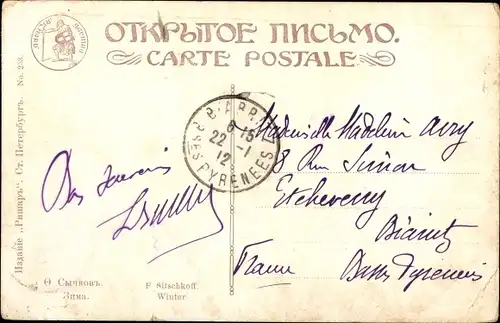 ОТКРЫТОЕ ПИСЬМО.
CARTE POSTALE
Изданіе „Ришаръ". Ст. Петербургъ. No. 233.
BIARRITZ
8-15
22 -1
12
BSES PYRENEES
Mademoiselle Madeleine
8 Rue Simon
Etcheverry
Biarritz
France Basses Pyrenees
Bon souvenir
Ѳ. Сычковъ.
Зима.
F. Sitschkoff.
Winter